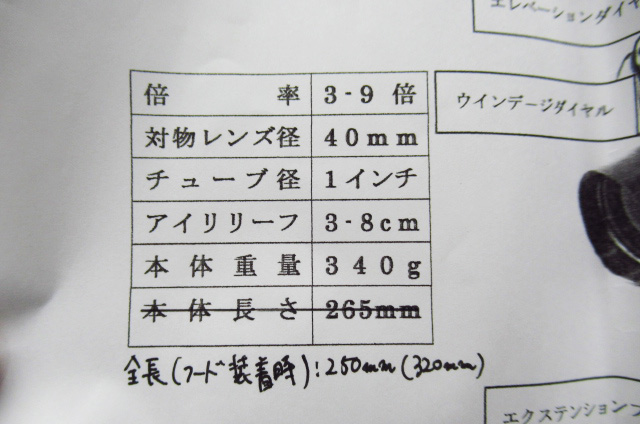 エレベーションダイヤ
倍率 3-9倍
ウインデージダイヤル
対物レンズ径 40mm
チューブ径 1インチ
アイリリーフ 3-8cm
本体重量 340g
本体長さ 265mm
全長(フード装着時):250mm(320mm)
エクステンションフ